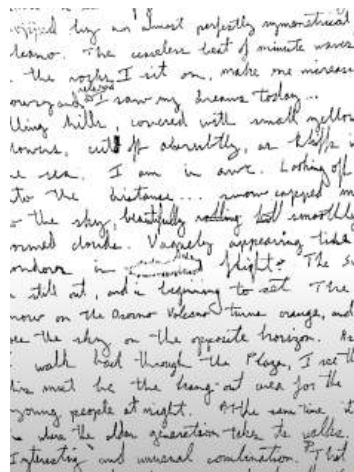 by an almost perfectly symmetrical
The ceaseless beat of minute waves
the rocks I sit on, make me increas
and relaxed I saw my dreams today...
lling hills, covered with small yellow
lowers, cut off abruptly, as cliffs
e sea. I am in awe. Looking off
to the distance... snow capped
the sky, beautifully rolling smoothly
ormed clouds. Vaguely appearing like
ondors in flight. The Su
still out, and is beginning to set. The
now on the Osorno Volcano turns orange, and
the sky on the opposite horizon. As
walk back through the Plaza, I see th
his must be the hang-out area for the
young people at night. At the same time it
where the older generation takes its walks.
Interesting and unusual combination. That